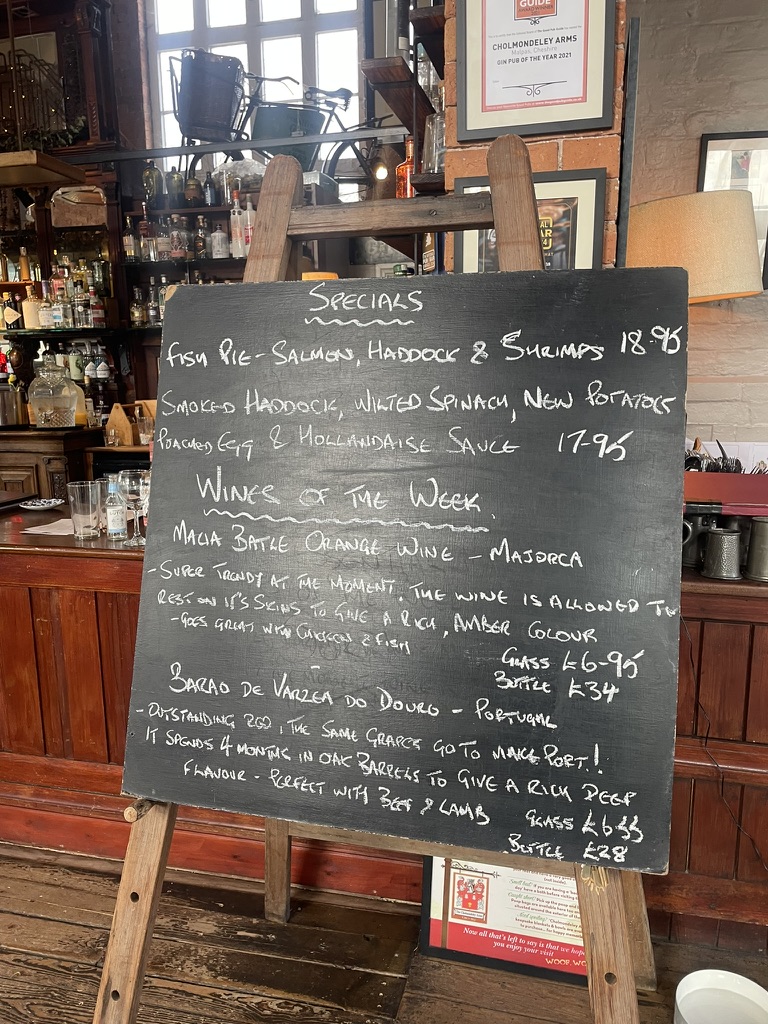 GUIDE
CHOLMONDELEY ARMS
Malpas, Cheshire
GIN PUB OF THE YEAR 2021
SPECIALS
FISH PIE - SALMON, HADDOCK & SHRIMPS 18-95
SMOKED HADDOCK, WILTED SPINACH, NEW POTATOES
POACHED EGG & HOLLANDAISE SAUCE 17-95
WINES OF THE WEEK
MACIA BATLE ORANGE WINE - MAJORCA
- SUPER TRENDY AT THE MOMENT. THE WINE IS ALLOWED TO
REST ON IT'S SKINS TO GIVE A RICH, AMBER COLOUR
- GOES GREAT WITH CHICKEN & FISH
GLASS £6-95
BOTTLE £34
BARAO DE VARZEA DO DOURO - PORTUGAL
- OUTSTANDING RED, THE SAME GRAPES GO TO MAKE PORT!
IT SPENDS 4 MONTHS IN OAK BARRELS TO GIVE A RICH DEEP
FLAVOUR - PERFECT WITH BEEF & LAMB
GLASS £6.55
BOTTLE £28
Now all that's left to say is that we hope
you enjoy your visit